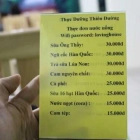 Thực Dưỡng Thiên Đường
Thực đơn nước uống
Wifi password: lovinghouse
Sữa Ông Thầy: 30.000đ
Ngũ cốc (Hàn Quốc): 30.000đ
Trà sữa Lúa Non: 30.000đ
Cam nguyên chất: 30.000đ
Cà phê: 25.000đ
Sữa bi lạc (Hàn Quốc): 25.000đ
Nước ngọt (coca): 15.000đ
Cam tẩm: 15.000đ